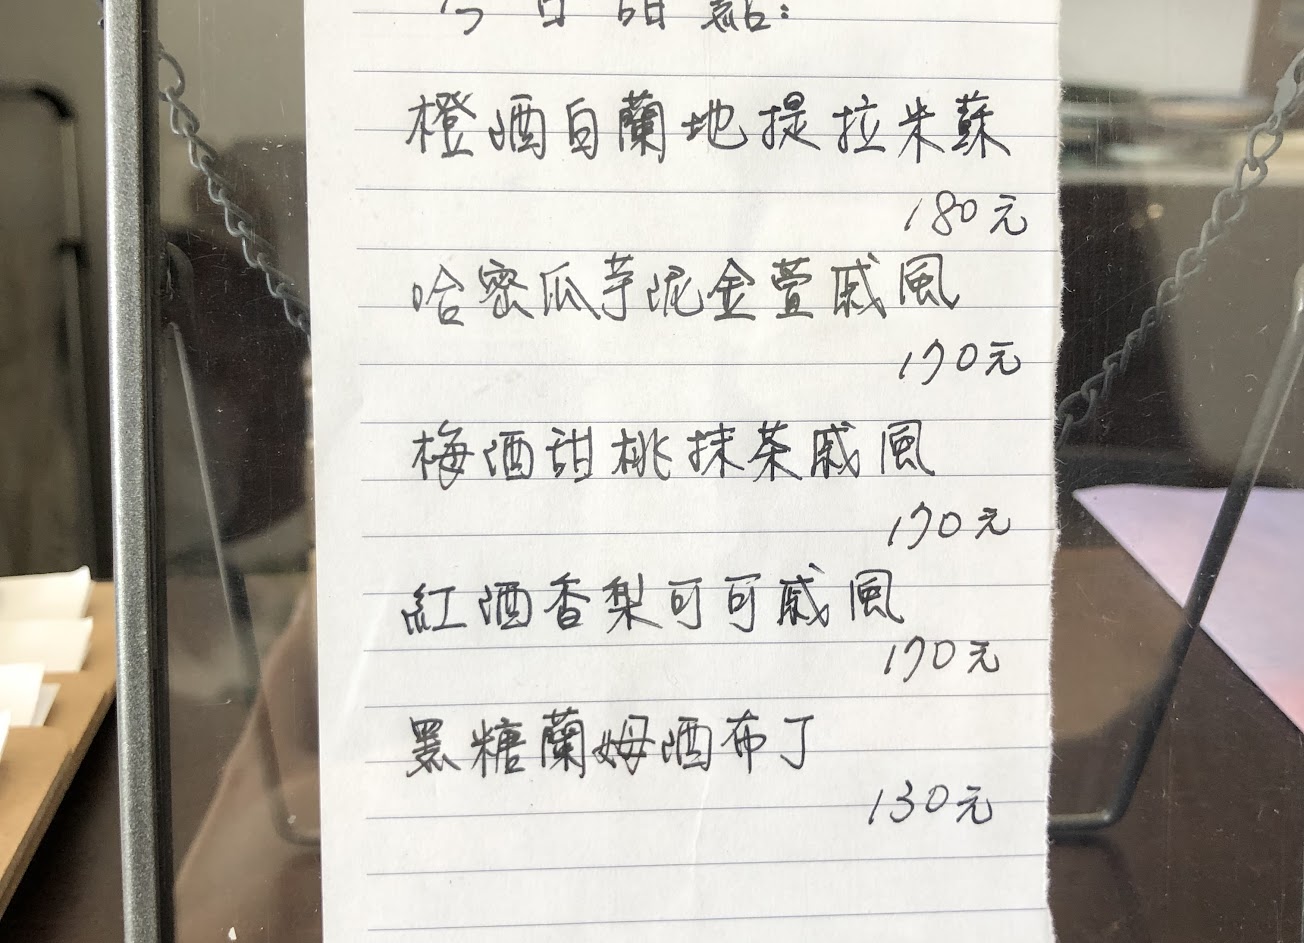 今日甜點:
橙酒白蘭地提拉米蘇
180元
哈密瓜芋泥金萱戚風
170元
梅酒甜桃抹茶戚風
170元
紅酒香梨可可戚風
170元
黑糖蘭姆酒布丁
130元